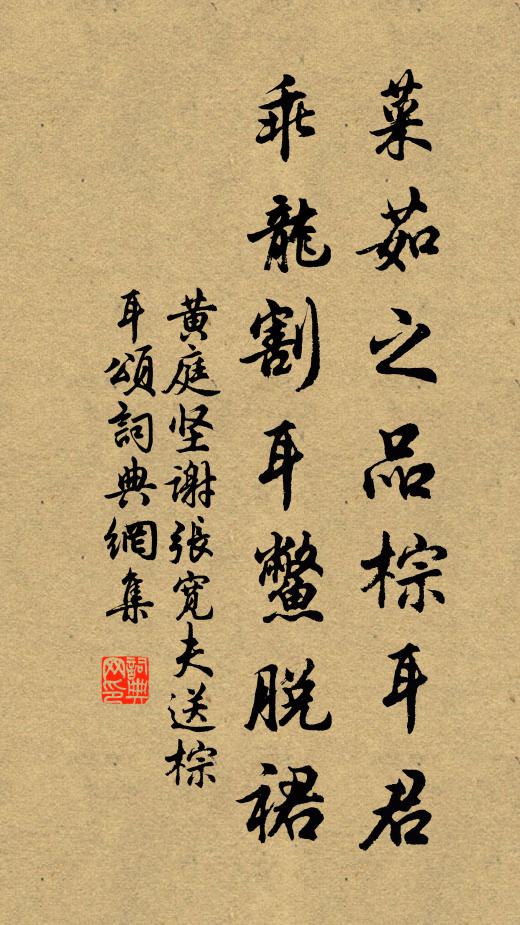 菜茹之品棕耳君
乘龍割耳鱉脫裙
黃庭坚謝張寬夫送棕
耳頌詞典網集
詞典
网印